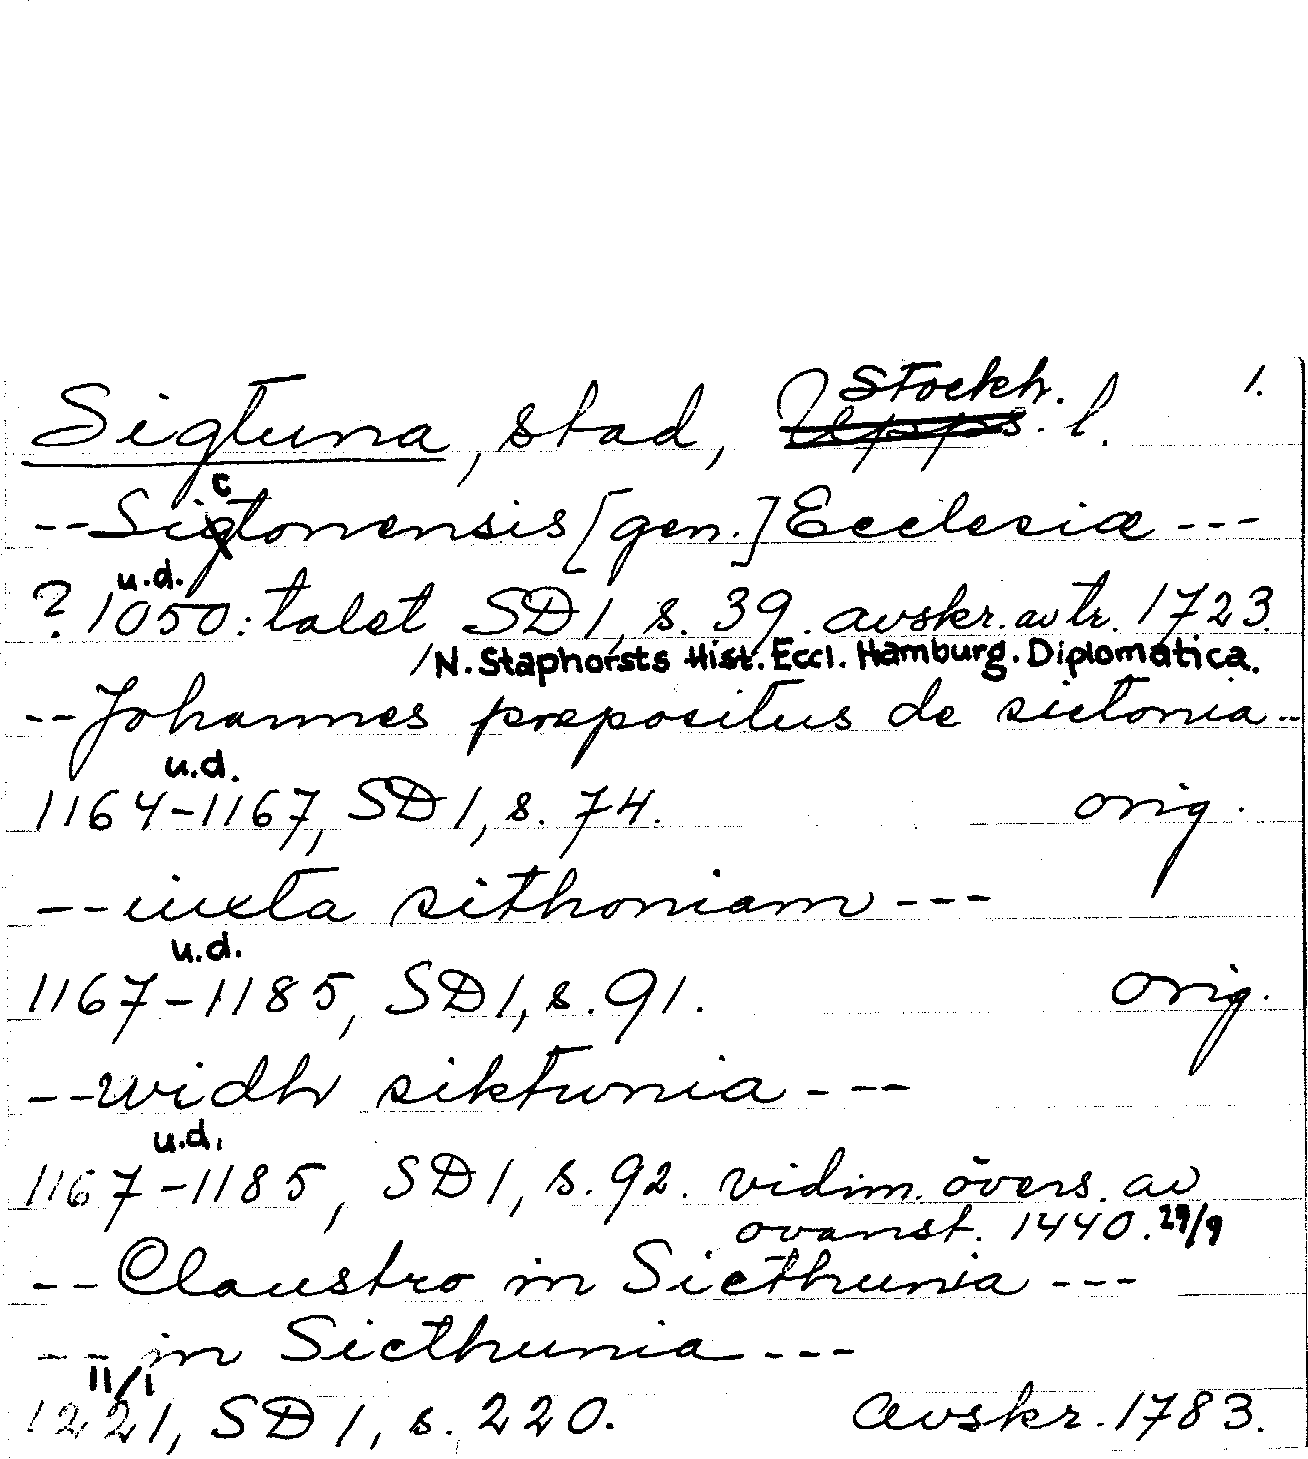 Sigtuna, stad, Stockh. l. 1.
--Sictonensis [gen.] Ecclesiæ ---
u.d.
? 1050:talet SD 1, s. 39. avskr. av tr. 1723.
/N. Staphorsts Hist. Eccl. Hamburg. Diplomatica.
--Johannes præpositus de sictonia--
u.d.
1164-1167, SD 1, s. 74. orig.
--iuxta sithoniam---
u.d.
1167-1185, SD 1, s. 91. orig.
--widh siktunia---
u.d.
1167-1185, SD 1, s. 92. vidim. övers. av
ovanst. 1440. 29/9
--Claustro in Sicthunia---
--in Sicthunia---
11/1
1221, SD 1, s. 220. avskr. 1783.